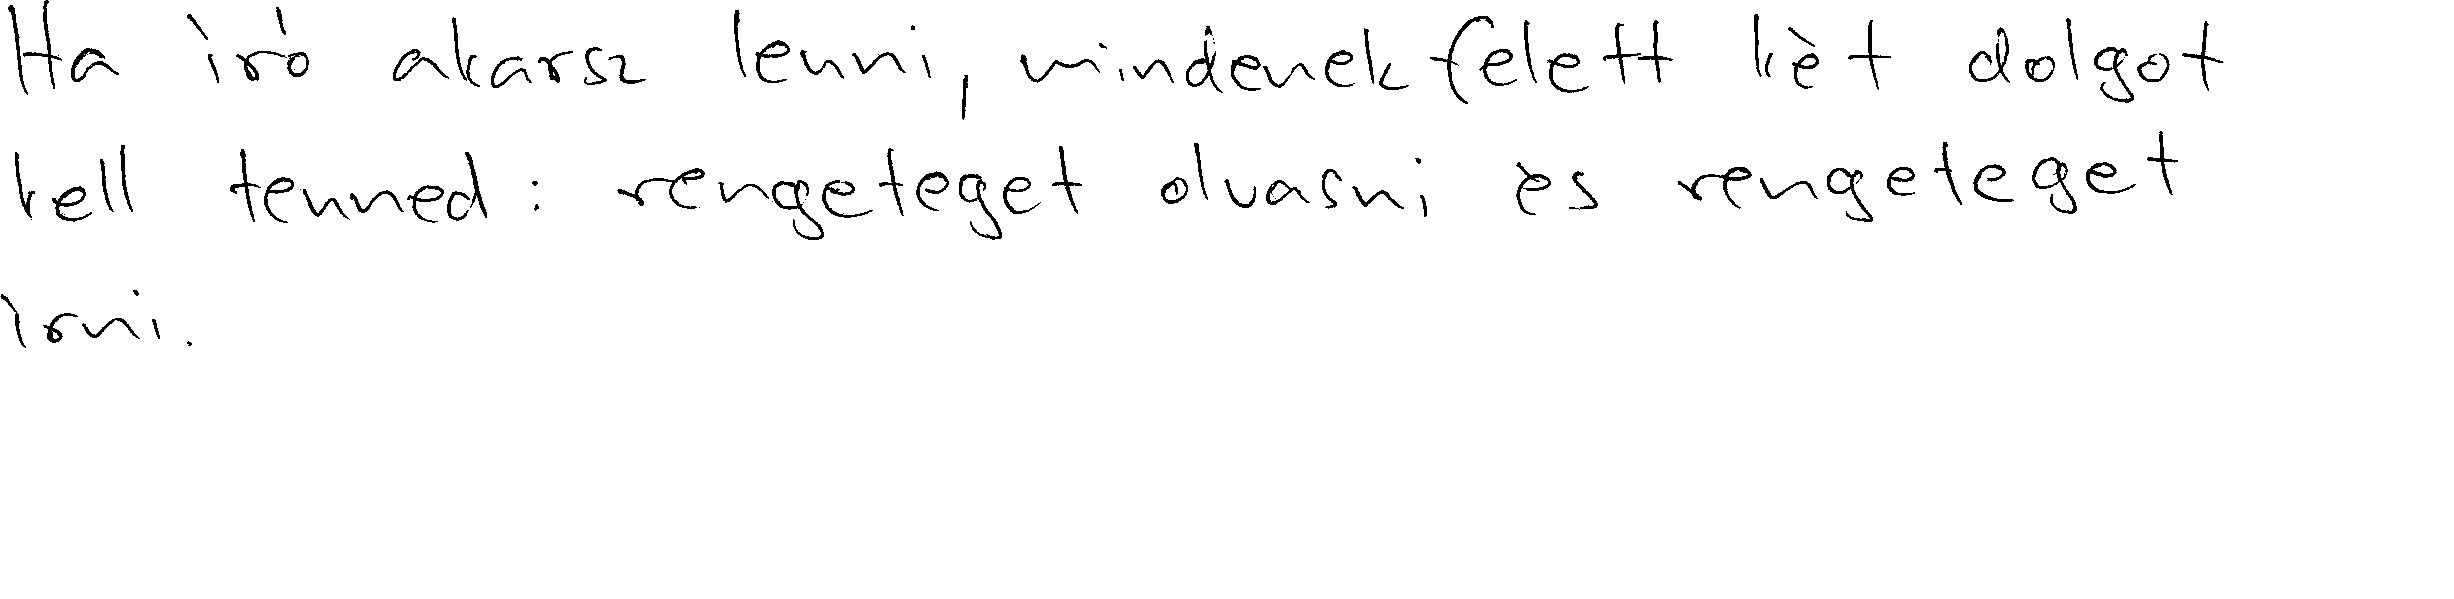 Ha író akarsz lenni, mindenekfelett két dolgot
kell tenned: rengeteget olvasni és rengeteget
írni.